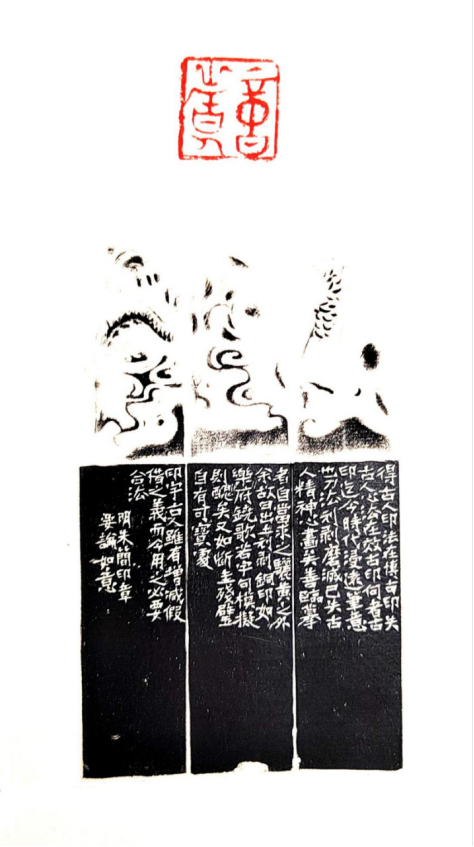 得古人印法在博古印失
古人心法在效古印何者古
印迄今時代浸遠筆意
刀法刓剥磨滅已失古
人精神心畫矣善臨摹
者自當求之驪黃之外
余故曰出土刓剥銅印如
樂府鐃歌若字句模擬
則醜矣又如斷圭殘璧
自有可寶處
印字古人雖有增減假
借之義而今用之必要
合法
明朱簡印章
要論如意